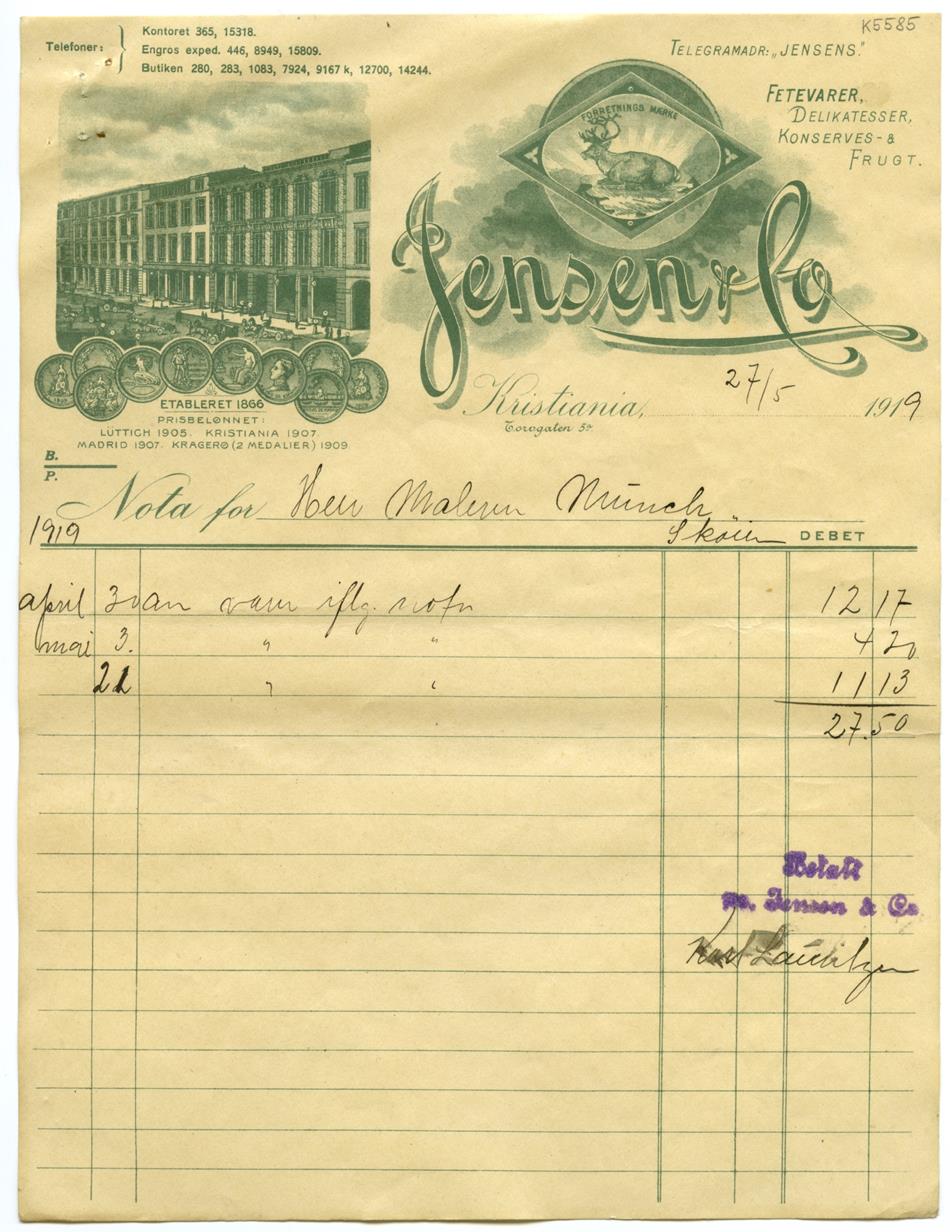 K5585
Telefoner:
Kontoret 365, 15318.
Engros exped. 446, 8949, 15809.
Butiken 280, 283, 1083, 7924, 9167 k, 12700, 14244.
TELEGRAMADR: „JENSENS."
FETEVARER,
DELIKATESSER,
KONSERVES- &
FRUGT.
FORRETNINGS MÆRKE
Jensen & Co
ETABLERET 1866
PRISBELØNNET:
LÜTTICH 1905. KRISTIANIA 1907.
MADRID 1907. KRAGERØ (2 MEDALIER) 1909.
Kristiania, 27/5 1919
Torvgaten 5
B.
P.
Nota for Herr Maleren Münch
1919 Skøien DEBET
april 30 an varer iflg. nota 12 17
mai 3. " " 4 20
21 " " 11 13
27.50
Betalt
pp. Jensen & Co
Karl Lauritzen